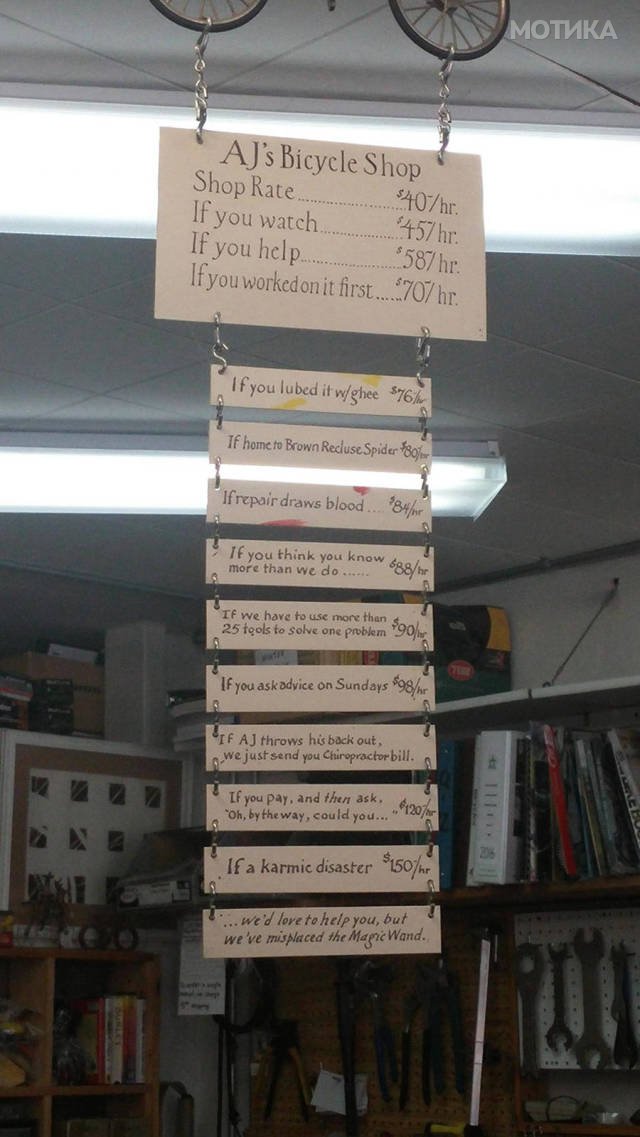 МОТИКА
AJ's Bicycle Shop
Shop Rate..................$40/hr.
If you watch...............$45/hr.
If you help..................$58/hr.
If you worked on it first......$70/hr.
If you lubed it w/ghee $76/hr
If home to Brown Recluse Spider $80/hr
If repair draws blood .... $84/hr
If you think you know
more than we do ...... $88/hr
If we have to use more than
25 tools to solve one problem $90/hr
If you ask advice on Sundays $98/hr
If AJ throws his back out,
we just send you Chiropractor bill.
If you pay, and then ask,
"Oh, by the way, could you... " $120/hr
If a karmic disaster $150/hr
"...we'd love to help you, but
we've misplaced the Magic Wand.
2016